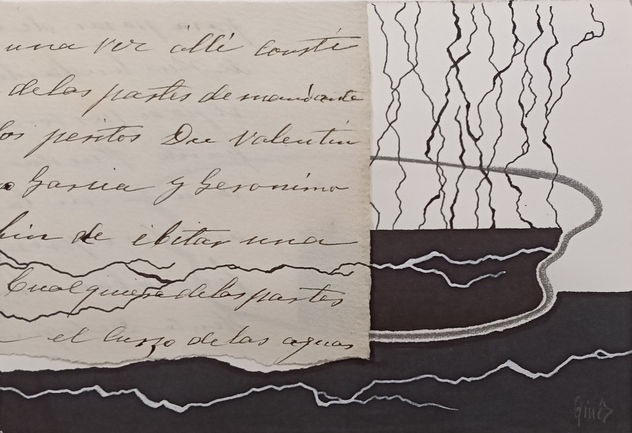 una vez allí consti
de las partes demandante
los peritos Dn Valentin
Garcia y Geronimo
fin de ebitar una
Cualquiera de las partes
el curso de las aguas